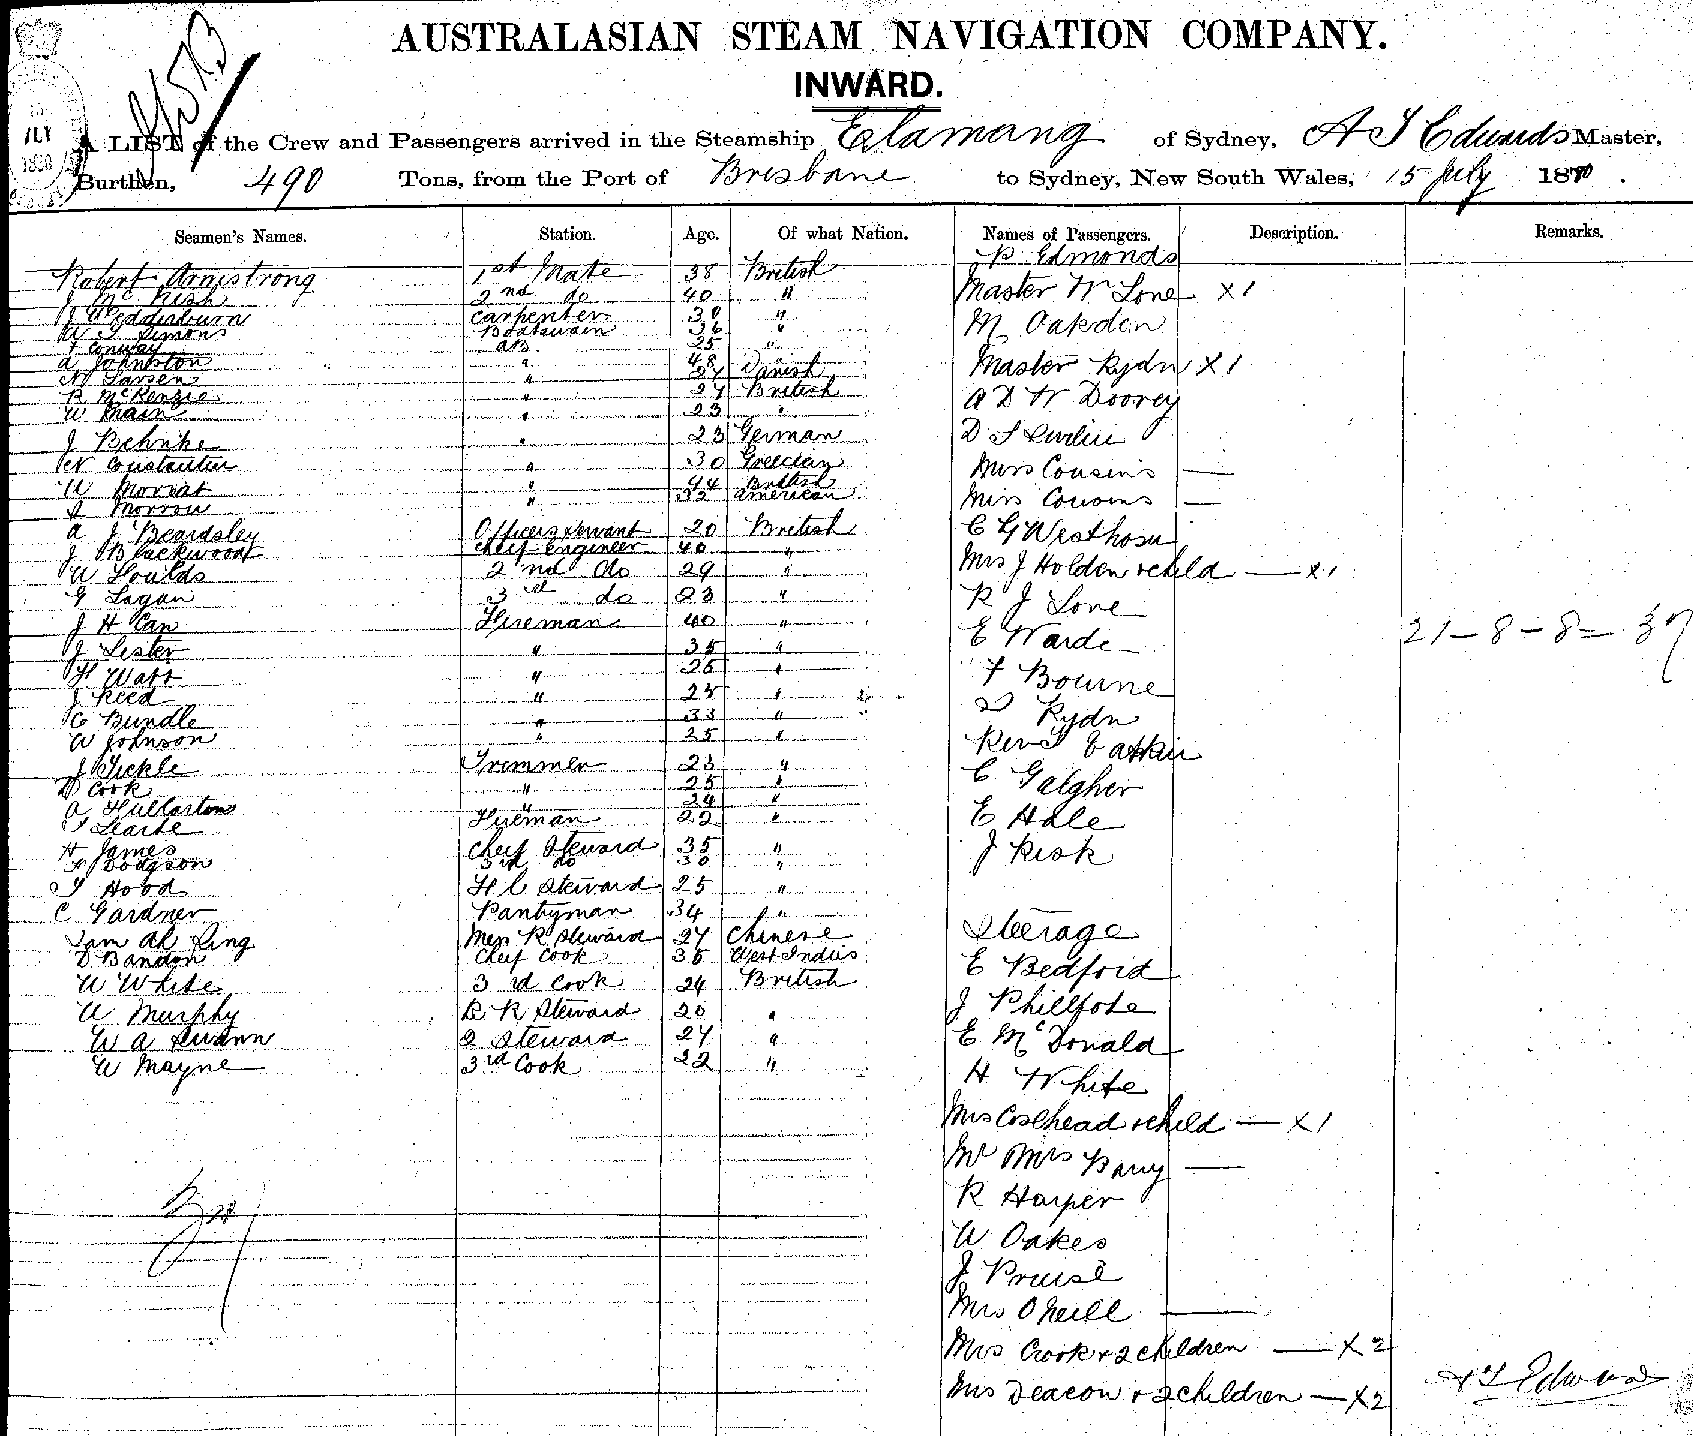 AUSTRALASIAN STEAM NAVIGATION COMPANY.
INWARD.
A LIST of the Crew and Passengers arrived in the Steamship of Sydney, A J Edwards Master,
Burthen, 490 Tons, from the Port of Brisbane to Sydney, New South Wales, 15 July 18
Seamen's Names. Station. Age. Of what Nation. Names of Passengers. Description. Remarks.
R Edmonds
Robert Armstrong 1st Mate 38 British
J McNish 2nd do 40 "
Master W Lone x 1
J Wedderburn Carpenter 30 "
W Simons Boatswain 36 "
M Oakden
J Conway AB 25 "
A Johnston " 48 "
Master Rydn x 1
N Larsen " Danish
R McKenzie " 27 British
A D W Doovey
W Main " 23 "
J Behnke " 23 German
D S
N Constantin " 30 Greecian
Miss Cousins —
W Morriat " 44 British
J Morrow " 32 American
Miss Cousins —
A J Beardsley Officers Servant 20 British
C G Westhosu
J Blackwood Chief Engineer 40 "
W Foulds 2nd do 29 "
Mrs J Holden & child — x 1
G Logan 3rd do 23 "
R J Lone
J H Can Fireman 40 "
21 – 8 – 8 = 37
E Warde
J Lester " 35 "
H Watt " 26 "
F Bourne
J Reed " 25 "
G Bundle " 33 "
Rydn
W Johnson " 25 "
Revd E Atkin
J Tickle Trimmer 23 "
D Cook " 25 "
C Galgher
A Fullarton " 24 "
T Learte Fireman 22 "
E Hale
H James Chief Steward 35 "
F Dodgson 3rd do 30 "
J Risk
T Hood F C Steward 25 "
C Gardner Pantryman 34 "
Steerage
Sam Ah King Mess R Steward 27 Chinese
D Bandon Chief Cook 35 West Indies
E Bedford
W White 3rd Cook 24 British
J Phillpote
W Murphy B R Steward 20 "
W A Swann 2 Steward 27 "
E McDonald
W Mayne 3rd Cook 22 "
H White
Mrs Coslhead & child — x 1
Mr Mrs Barry —
R Harper
W Oakes
J Pruise
Mrs O'Neill —
Mrs Crook & 2 children — x 2
A J Edwards
Mrs Deacon & 2 children — x 2